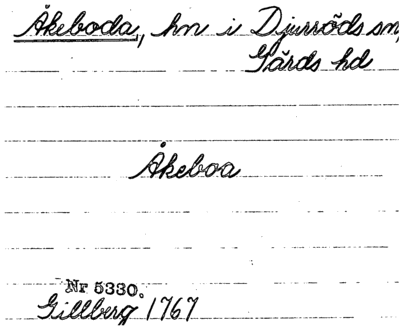 Åkeboda, hn i Djurröds sn,
Gärds hd
Åkeboa
Nr 5330.
Gillberg 1767